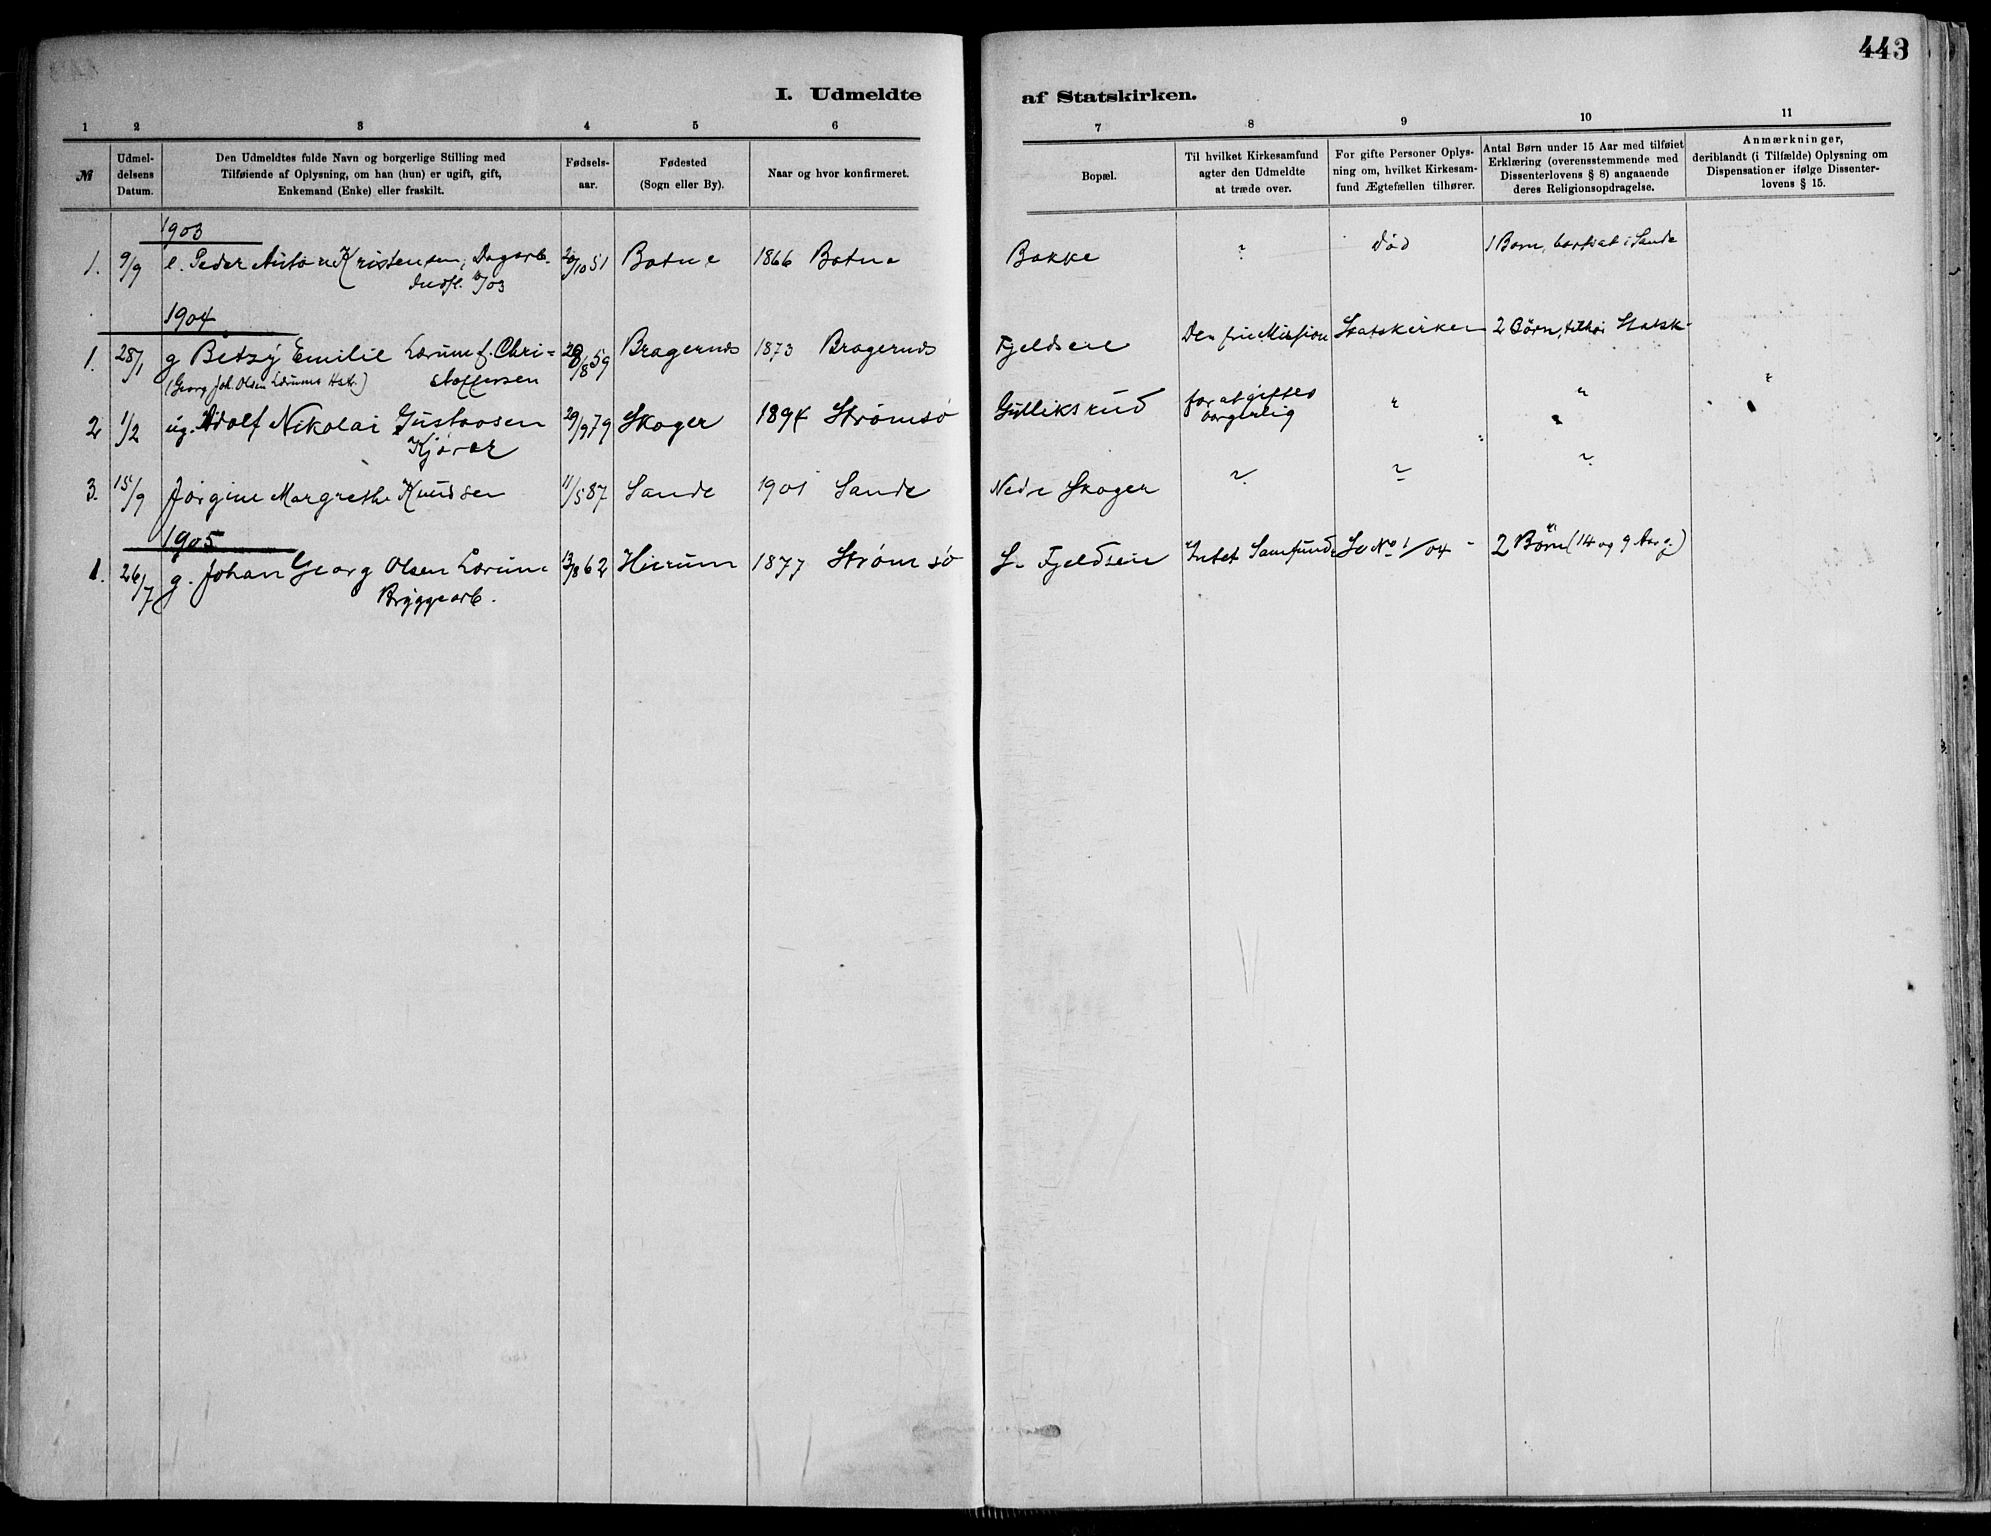 443
I. Udmeldte af Statskirken.
1 2 3 4 5 6 7 8 9 10 11
№
Udmel-
delsens
Datum.
Den Udmeldtes fulde Navn og borgerlige Stilling med
Tilføiende af Oplysning, om han (hun) er ugift, gift,
Enkemand (Enke) eller fraskilt.
Fødsels-
aar.
Fødested
(Sogn eller By).
Naar og hvor konfirmeret.
Bopæl.
Til hvilket Kirkesamfund
agter den Udmeldte
at træde over.
For gifte Personer Oplys-
ning om, hvilket Kirkesam-
fund Ægtefællen tilhører.
Antal Børn under 15 Aar med tilføiet
Erklæring (overensstemmende med
Dissenterlovens § 8) angaaende
deres Religionsopdragelse.
Anmærkninger,
deriblandt (i Tilfælde) Oplysning om
Dispensationer ifølge Dissenter-
lovens § 15.
1903
1. 9/9 e. Peder Anton Kristensen, Dagarb. 20/10 51 Botne 1866 Botne Bakke ? død 1 Barn, bortsat i Sande
Indfl. /03
1904
1. 28/1 g Betzy Emilie Lærum f. Chri= 20/8 59 Bragernes 1873 Bragernes Fjeldseie Den frie Mission Statskirken 2 Børn, tilhør Statsk.
(Georg Joh. Olsen Lærums Hst.) stoffersen
2 1/2 ug. Adolf Nikolai Gustavsen 29/9 79 Skoger 1894 Strømsø Gulliksrud for at giftes " "
Kjører borgerlig
3. 15/9 Jørgine Margrethe Knudsen 11/5 87 Sande 1901 Sande Nedre Skoger ? ? ?
1905
1. 26/7 g. Johan Georg Olsen Lærum 13/8 62 Hurum 1877 Strømsø S. Fjeldseie Intet Samfund Se No 1/04 - 2 Børn (14 og 9 Aar g.)
Bryggearb.